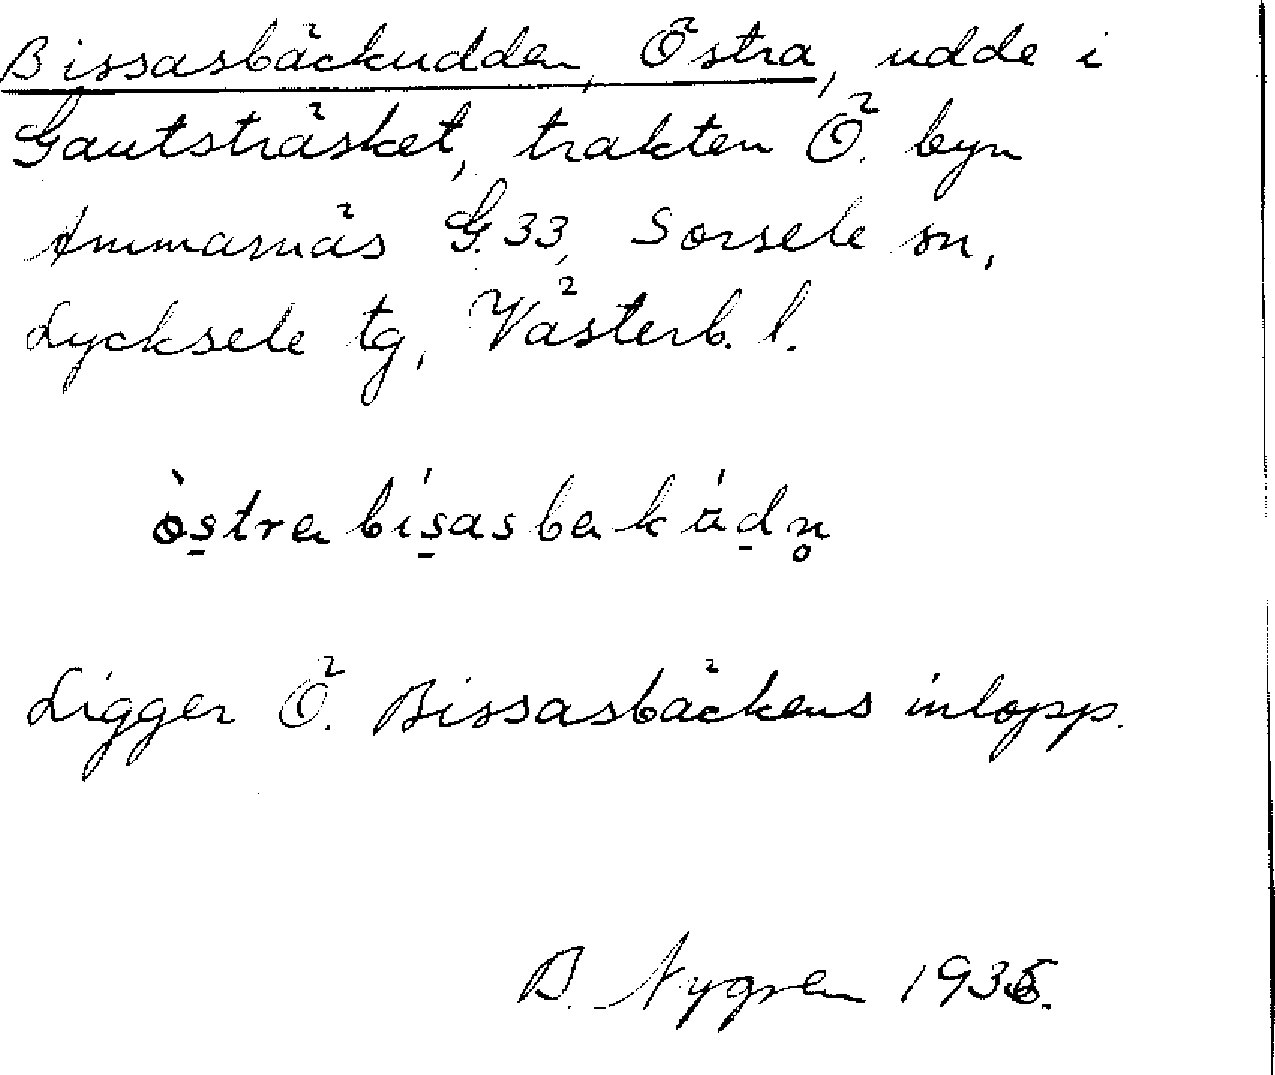 Bissasbäckudden, Östra, udde i
Gautsträsket, trakten Ö. byn
Ammarnäs G. 33, Sorsele sn,
Lycksele tg, Västerb. l.
östra bisasbakädn̥
Ligger Ö. Bissasbäckens inlopp.
B. Nygren 1935.